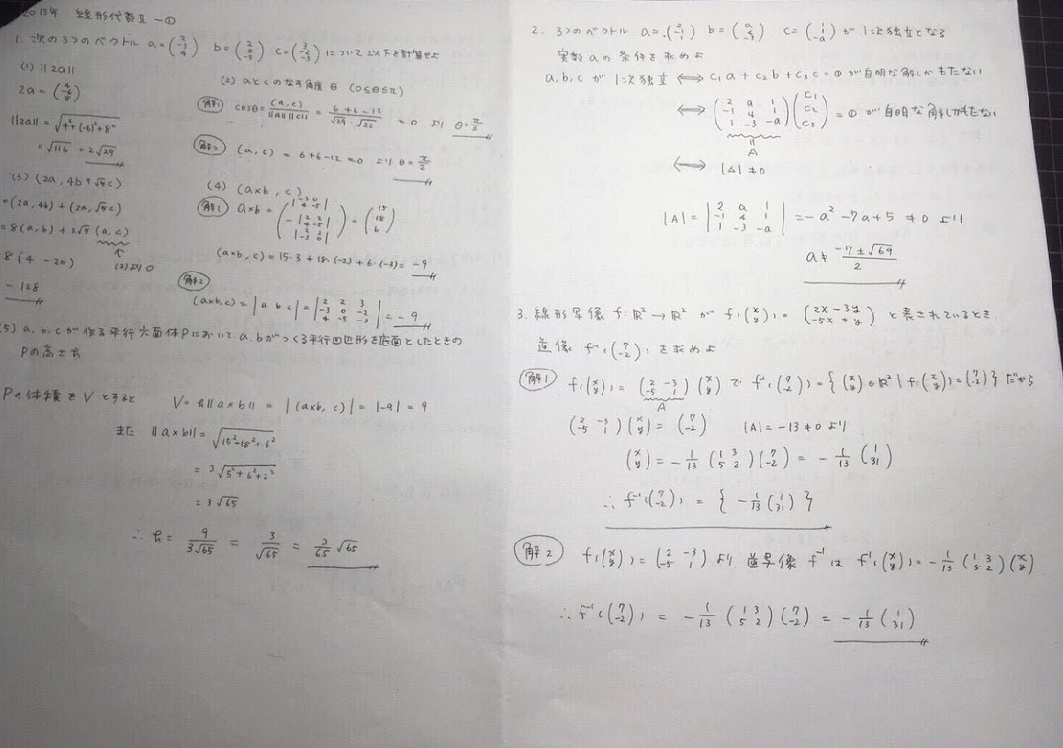 2013年 線形代数Ⅱ-①
1. 次の3つのベクトル a=(2 -3 4) b=(2 0 -5) c=(3 -2 -3)について以下を計算せよ
(1) ||2a||
2a = (4 -6 8)
||2a|| = √4²+(-6)²+8²
= √116 = 2√29
(2) aとcのなす角度 θ (0≤θ≤π)
解1 cosθ = (a,c)/||a|| ||c|| = 6+6-12/√29・√22 = 0 より θ=π/2
解2 (a,c) = 6+6-12 = 0 より θ=π/2
(3) (2a, 4b+√5c)
=(2a,4b)+(2a,√5c)
=8(a,b)+2√5(a,c)
(2)より0
8(4-20)
-128
(4) (a×b, c)
解1 a×b = (|-3 0 4 -5| -|2 2 4 -5| |2 2 -3 0|) = (15 18 6)
(a×b,c)=15・3+18・(-2)+6・(-3)=-9
解2
(a×b,c) = |a b c| = |2 2 3 -3 0 -2 4 -5 -3| = -9
(5) a,b,cが作る平行六面体Pにおいて a,bがつくる平行四辺形を底面としたときの
Pの高さh
Pの体積をVとすると V=h||a×b|| = |(a×b,c)| = |-9| = 9
また ||a×b|| = √15²+18²+6²
= 3√5²+6²+2²
= 3√65
∴ h = 9/3√65 = 3/√65 = 3/65 √65
2. 3つのベクトル a=(2 -1 1) b=(a 4 -3) c=(1 1 -a) が1次独立となる
実数aの条件を求めよ
a,b,cが1次独立 ⟺ c₁a+c₂b+c₃c=0が自明な解しかもたない
⟺ (2 a 1 -1 4 1 1 -3 -a)(c₁ c₂ c₃) = 0 が自明な解しかもたない
A
⟺ |A|≠0
|A| = |2 a 1 -1 4 1 1 -3 -a| = -a²-7a+5 ≠0 より
a≠ -7±√69/2
3. 線形写像 f:R²→R² が f(x y) = (2x-3y -5x+y) と表されているとき
逆像 f⁻¹(7 -2) を求めよ
解1 f(x y) = (2 -3 -5 1)(x y) で f⁻¹(7 -2) = {(x y)∈R² | f(x y)=(7 -2)} だから
A
(2 -3 -5 1)(x y) = (7 -2) |A|=-13≠0 より
(x y) = -1/13 (1 3 5 2)(7 -2) = -1/13 (1 31)
∴ f⁻¹(7 -2) = {-1/13 (1 31)}
解2 f(x y) = (2 -3 -5 1) より 逆写像 f⁻¹は f⁻¹(x y) = -1/13 (1 3 5 2)(x y)
∴ f⁻¹(7 -2) = -1/13 (1 3 5 2)(7 -2) = -1/13 (1 31)